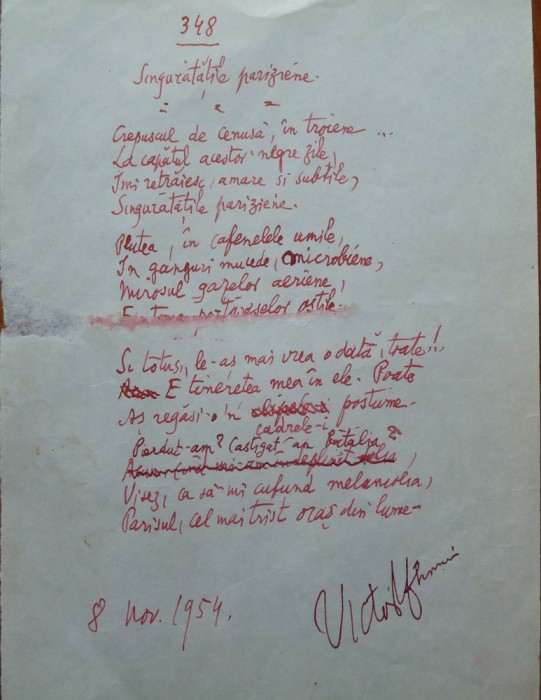 348
Singurătățile pariziene.
Crepuscul de cenusă, în troiene...
La capătul acestor negre zile,
Imi retrăiesc, amare si subtile,
Singurătățile pariziene.
Plutea, în cafenelele umile,
In ganguri mucede, microbiene,
Mirosul gazelor aeriene,
portăreselor ostile.
Si totusi, le-as mai vrea odată, toate!..
E tineretea mea în ele. Poate
As regăsi-o în postume
cadrele-i
Perdut-am? Castigat-am bătălia?
Visez, ca să-mi cufund melancolia,
Parisul, cel mai trist oraș din lume-
8 nov. 1954.
Victor Eftimiu